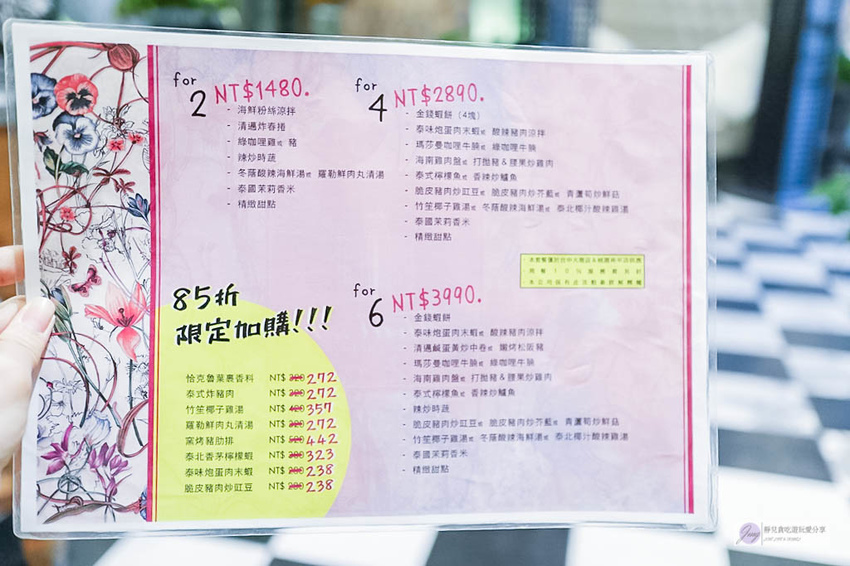 for 2 NT$1480.
- 海鮮粉絲涼拌
- 清邁炸春捲
- 綠咖哩雞或 豬
- 辣炒時蔬
- 冬蔭酸辣海鮮湯或 羅勒鮮肉丸清湯
- 泰國茉莉香米
- 精緻甜點
for 4 NT$2890.
- 金錢蝦餅（4塊）
- 泰味炮蛋肉末蝦或 酸辣豬肉涼拌
- 瑪莎曼咖哩牛腩或 綠咖哩牛腩
- 海南雞肉盤或 打拋豬&腰果炒雞肉
- 泰式檸檬魚或 香辣炒鱸魚
- 脆皮豬肉炒豇豆或 脆皮豬肉炒芥藍或 青蘆筍炒鮮菇
- 竹笙椰子雞湯或 冬蔭酸辣海鮮湯或 泰北椰汁酸辣雞湯
- 泰國茉莉香米
- 精緻甜點
85折
限定加購!!!
恰克魯葉裹香料 NT$ 320 272
泰式炸豬肉 NT$ 320 272
竹笙椰子雞湯 NT$ 420 357
羅勒鮮肉丸清湯 NT$ 320 272
窯烤豬肋排 NT$ 520 442
泰北香茅檸檬蝦 NT$ 380 323
泰味炮蛋肉末蝦 NT$ 280 238
脆皮豬肉炒豇豆 NT$ 280 238
for 6 NT$3990.
- 金錢蝦餅
- 泰味炮蛋肉末蝦或 酸辣豬肉涼拌
- 清邁鹹蛋黃炒中卷或 嫩烤松阪豬
- 瑪莎曼咖哩牛腩或 綠咖哩牛腩
- 海南雞肉盤或 打拋豬&腰果炒雞肉
- 泰式檸檬魚或 香辣炒鱸魚
- 辣炒時蔬
- 脆皮豬肉炒豇豆或 脆皮豬肉炒芥藍或 青蘆筍炒鮮菇
- 竹笙椰子雞湯或 冬蔭酸辣海鮮湯或 泰北椰汁酸辣雞湯
- 泰國茉莉香米
- 精緻甜點
靜兒貪吃遊玩愛分享